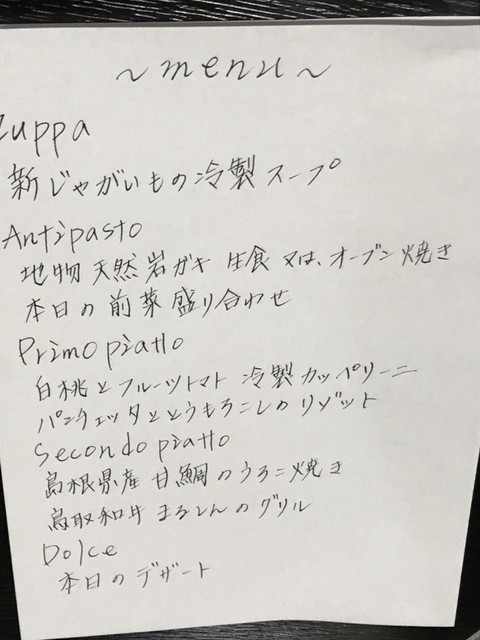 ~menu~
Zuppa
新じゃがいもの冷製スープ
Antipasto
地物天然岩ガキ 生食 又は、オーブン焼き
本日の前菜盛り合わせ
Primo piatto
白桃とフルーツトマト 冷製カッペリーニ
パンチェッタととうもろこしのリゾット
Secondo piatto
島根県産 甘鯛のうろこ焼き
鳥取和牛 まるしんのグリル
Dolce
本日のデザート